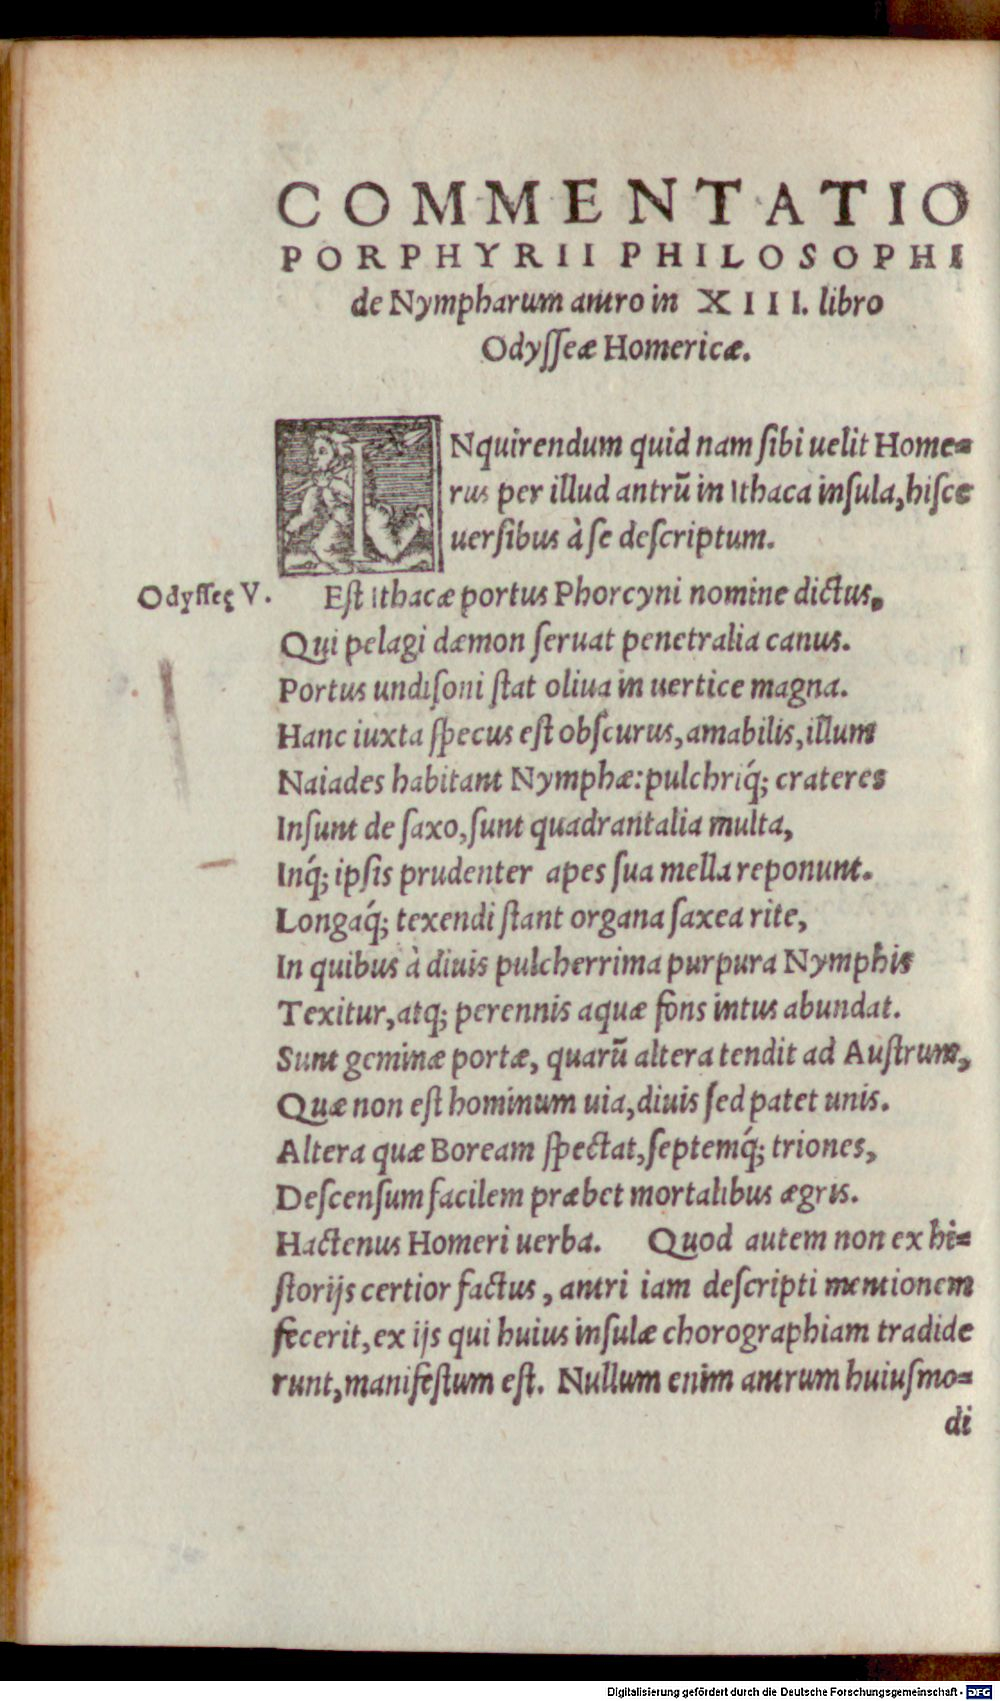 COMMENTATIO
PORPHYRII PHILOSOPHI
de Nympharum antro in XIII. libro
Odysseæ Homericæ.
INquirendum quid nam sibi uelit Home=
rus per illud antrũ in Ithaca insula, hisce
uersibus à se descriptum.
Odysseę V.
Est Ithacæ portus Phorcyni nomine dictus,
Qui pelagi dæmon seruat penetralia canus.
Portus undisoni stat oliua in uertice magna.
Hanc iuxta specus est obscurus, amabilis, illum
Naiades habitant Nymphæ: pulchriq́; crateres
Insunt de saxo, sunt quadrantalia multa,
Inq́; ipsis prudenter apes sua mella reponunt.
Longaq́; texendi stant organa saxea rite,
In quibus à diuis pulcherrima purpura Nymphis
Texitur, atq; perennis aquæ fons intus abundat.
Sunt geminæ portæ, quarũ altera tendit ad Austrum,
Quæ non est hominum uia, diuis sed patet unis.
Altera quæ Boream spectat, septemq́; triones,
Descensum facilem præbet mortalibus ægris.
Hactenus Homeri uerba. Quod autem non ex hi=
storijs certior factus, antri iam descripti mentionem
fecerit, ex ijs qui huius insulæ chorographiam tradide
runt, manifestum est. Nullum enim antrum huiusmo=
di
Digitalisierung gefördert durch die Deutsche Forschungsgemeinschaft - DFG